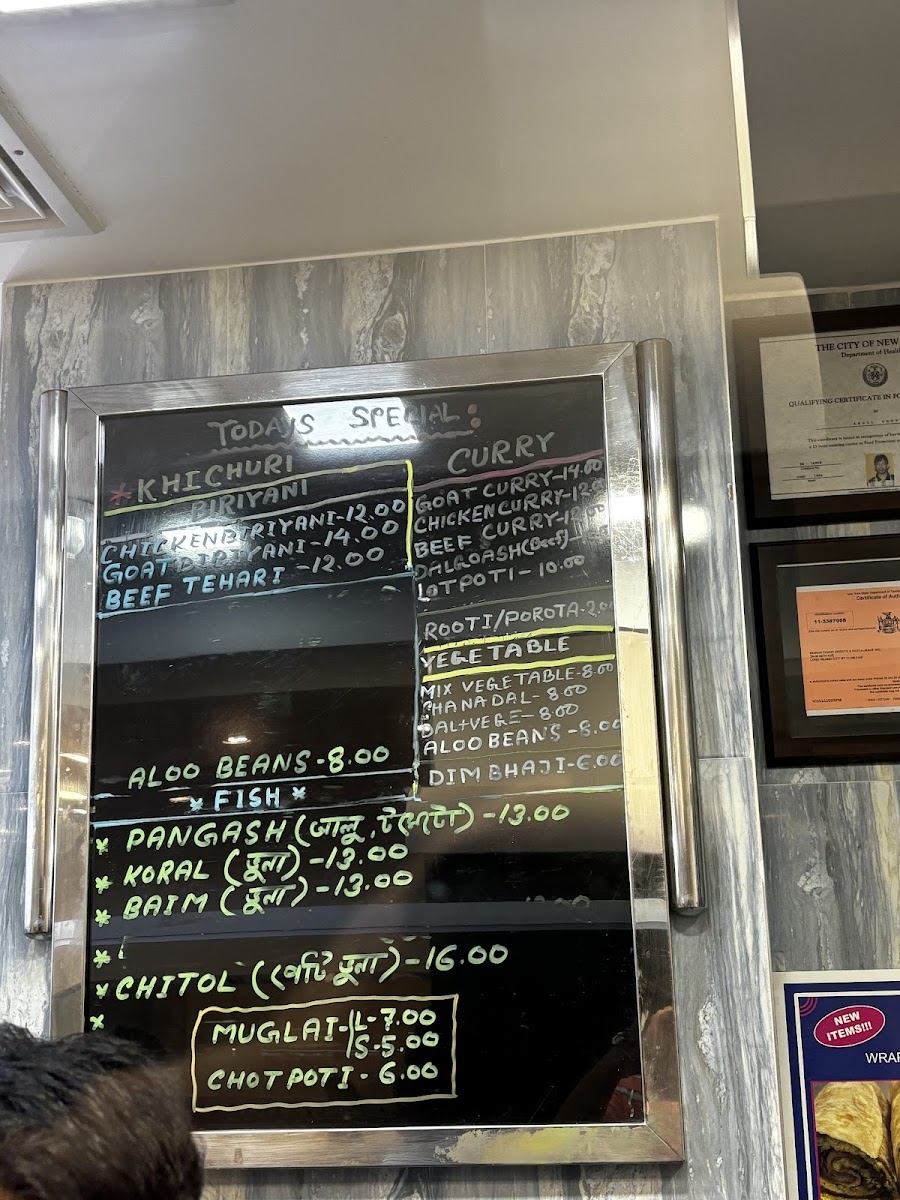 TODAYS SPECIAL:
* KHICHURI
BIRIYANI
CHICKEN BIRIYANI-12.00
GOAT BIRIYANI-14.00
BEEF TEHARI -12.00
ALOO BEANS-8.00
CURRY
GOAT CURRY-14.00
CHICKEN CURRY-12.00
BEEF CURRY-
DALGOASH(Beef)
LOTPOTI- 10.00
ROOTI/POROTA-2.00
VEGETABLE
MIX VEGETABLE-8.00
CHANADAL- 8.00
DAL+VEGE- 8.00
ALOO BEANS -8.00
DIM BHAJI-6.00
* FISH *
* PANGASH (আলু, টমেটো) -13.00
* KORAL (ভুনা) -13.00
* BAIM (ভুনা) -13.00
*
* CHITOL (পেটি ভুনা) -16.00
*
MUGLAI-L-7.00
S-5.00
CHOTPOTI- 6.00
THE CITY OF NEW
Department of Heal
QUALIFYING CERTIFICATE IN FO
Certificate of Auth
11-3387005
NEW ITEMS!!!
WRAP